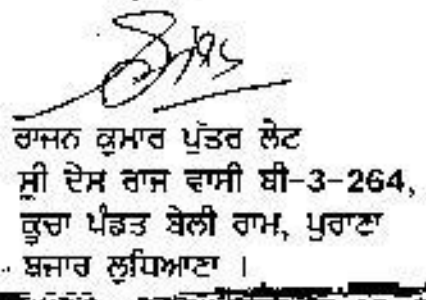 ਰਾਜਨ ਕੁਮਾਰ ਪੁੱਤਰ ਲੇਟ
ਸ੍ਰੀ ਦੇਸ ਰਾਜ ਵਾਸੀ ਬੀ-3-264,
ਕੂਚਾ ਪੰਡਤ ਬੇਲੀ ਰਾਮ, ਪੁਰਾਣਾ
ਬਜਾਰ ਲੁਧਿਆਣਾ ।